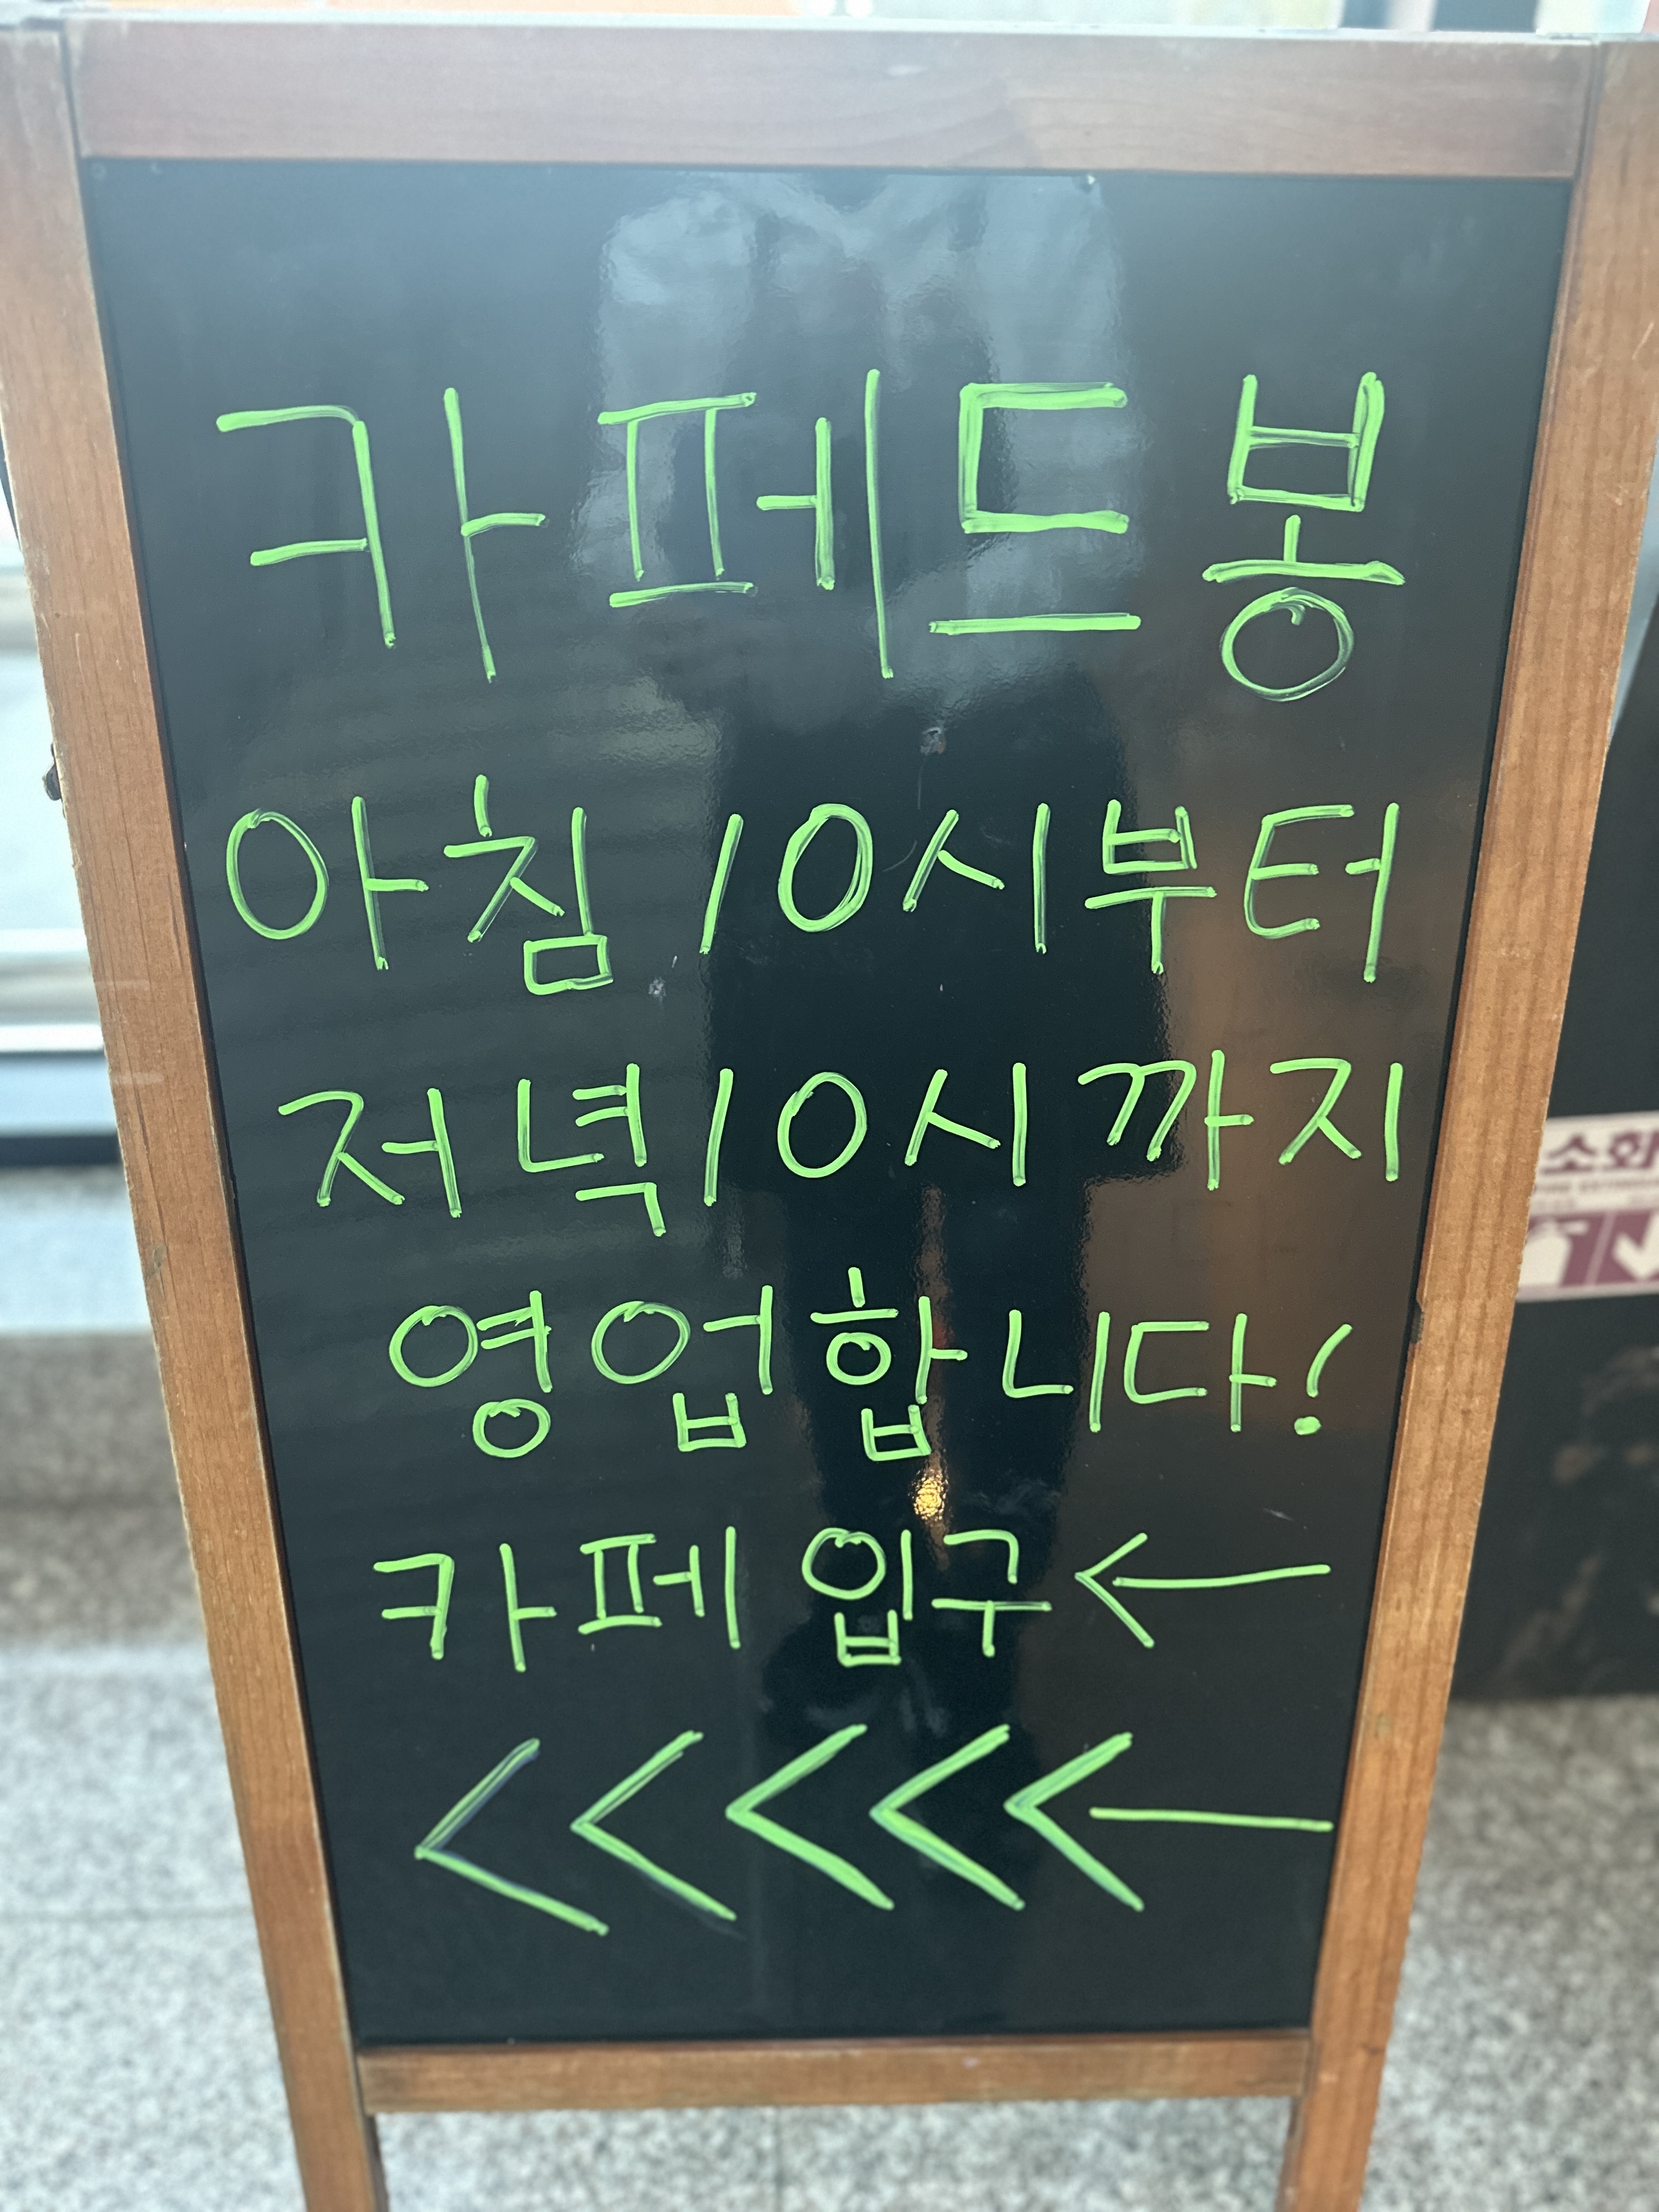 카페드봉
아침 10시부터
저녁 10시까지
영업합니다!
카페 입구 ←
<<<<<-
소화